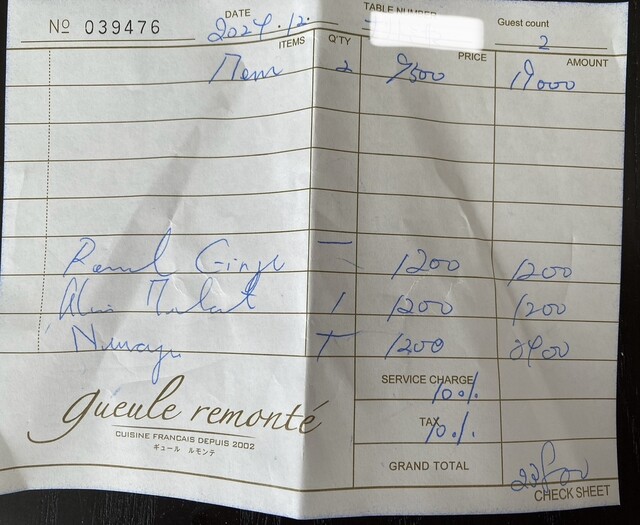 № 039476
DATE
2024.12.
TABLE NUMBER
Guest count
2
ITEMS Q'TY PRICE AMOUNT
Menu 2 9500 19000
1200 1200
1 1200 1200
1200 2400
SERVICE CHARGE 10%
TAX 10%
GRAND TOTAL
gueule remonté
CUISINE FRANCAIS DEPUIS 2002
ギュール ルモンテ
CHECK SHEET